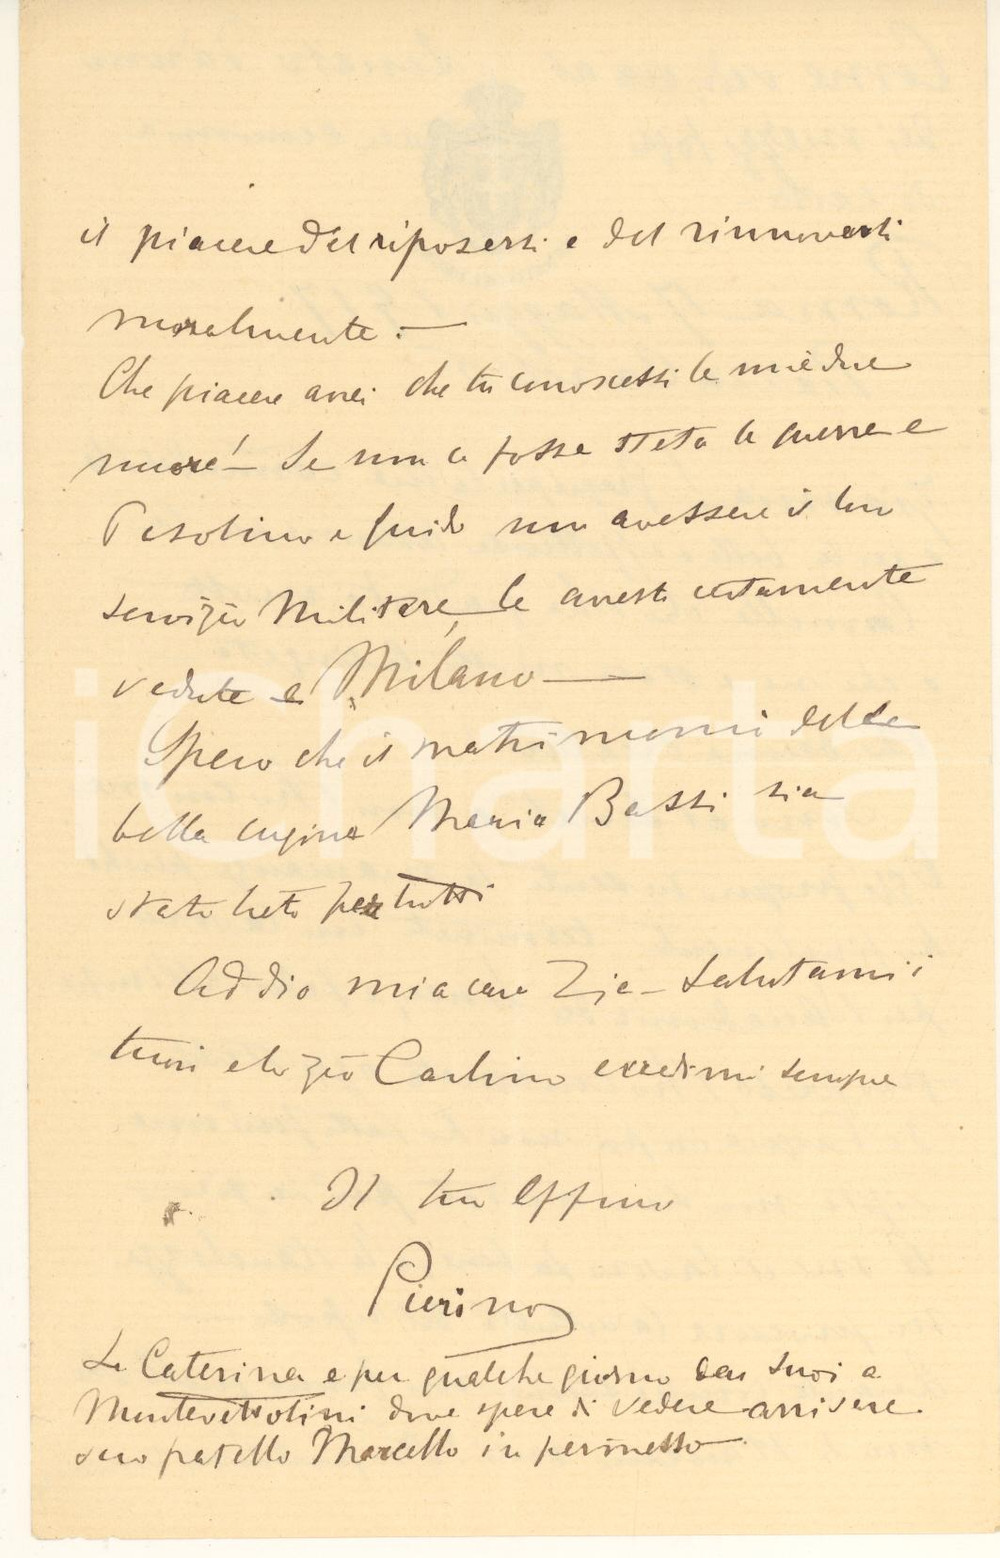 il piacere del riposarsi e del rinnovarsi
moralmente. —
Che piacere avrei che tu conoscessi le mie due
nuore! — Se non ci fosse stata la guerra e
Pesolino e Guido non avessero il loro
servizio Militare, le avresti certamente
vedute a Milano —
Spero che il matrimonio della
bella cugina Maria Bassi sia
stato lieto per tutti
Addio mia cara Zia — Salutami i
tuoi e lo zio Carlino e credimi sempre
Il tuo affmo
Pierino
La Caterina e per qualche giorno dai suoi a
Montevettolini dove spera di vedere arrivare
suo fratello Marcello in permesso
iCharta